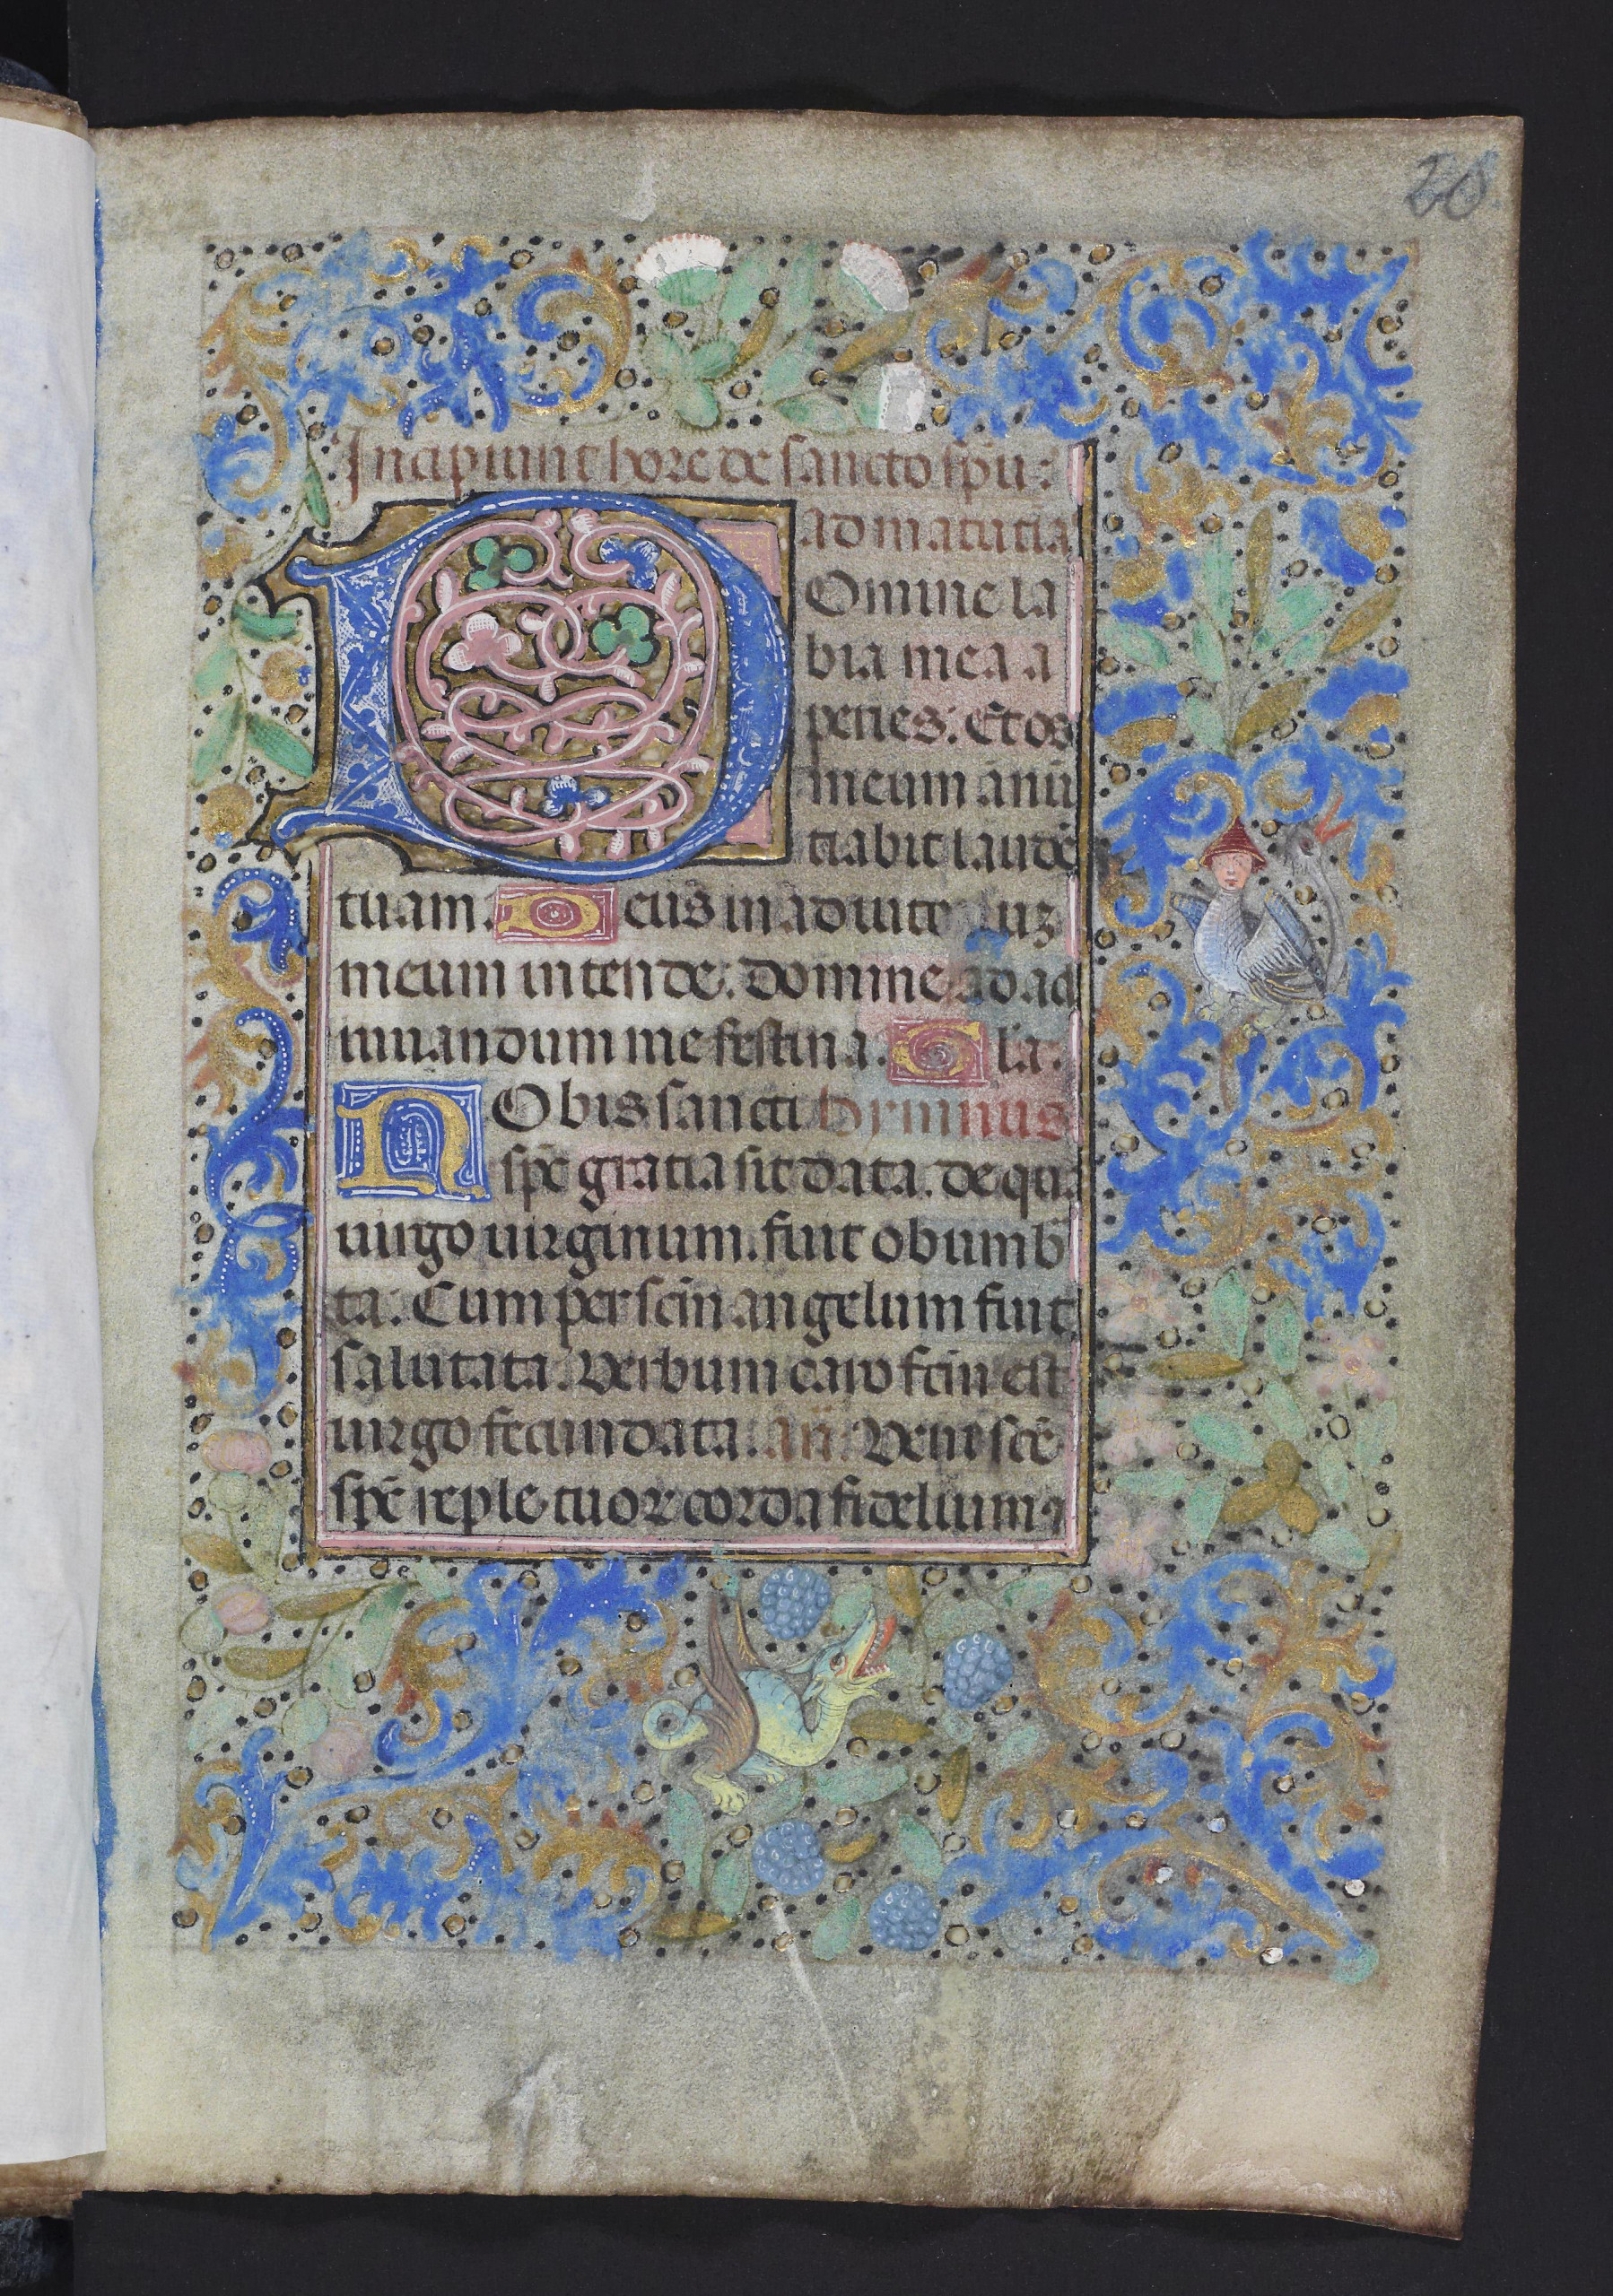 20
Incipiunt hore de sancto spũ:
ad matutiã
DOmine la
bia mea a
peries: Et os
meum ãnũ
tiabit laudẽ
tuam. Deus in adiutoriuz
meum intende: Domine ad ad
iuuandum me festina. Gla.
NObis sancti hymnus
spc̃ gratia sit data. de qua
uirgo uirginum. fuit obumb
ta: Cum per scm̃ angelum fuit
salutata. Verbum caro fcm̃ est
uirgo fecundata. añ: Veni scẽ
spc̃ reple tuoꝝ corda fidelium ⁊